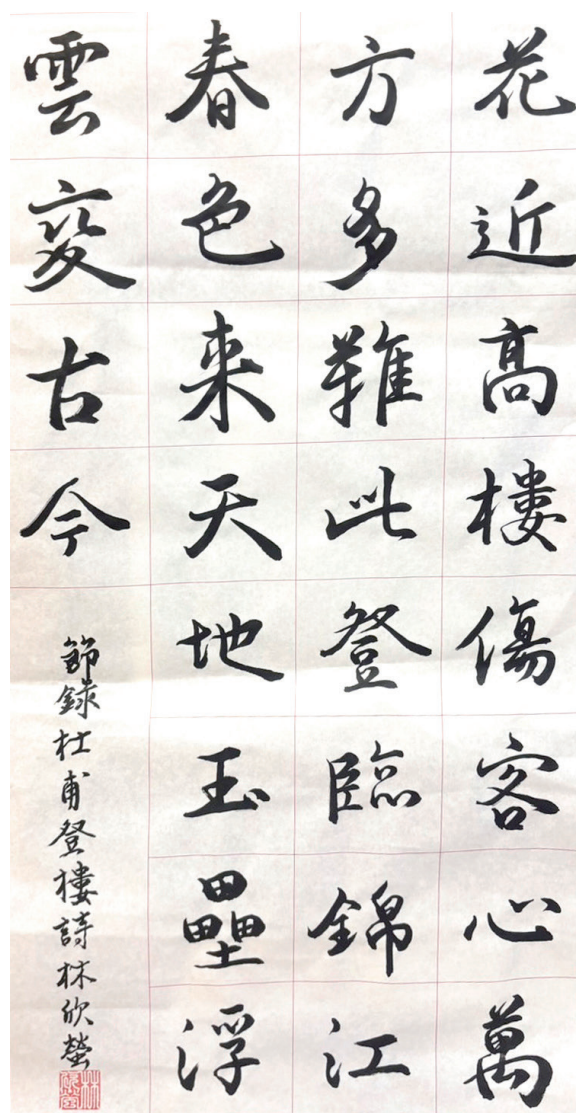 花近高樓傷客心萬
方多難此登臨錦江
春色来天地玉壘浮
雲变古今
節錄杜甫登樓詩林欣螢